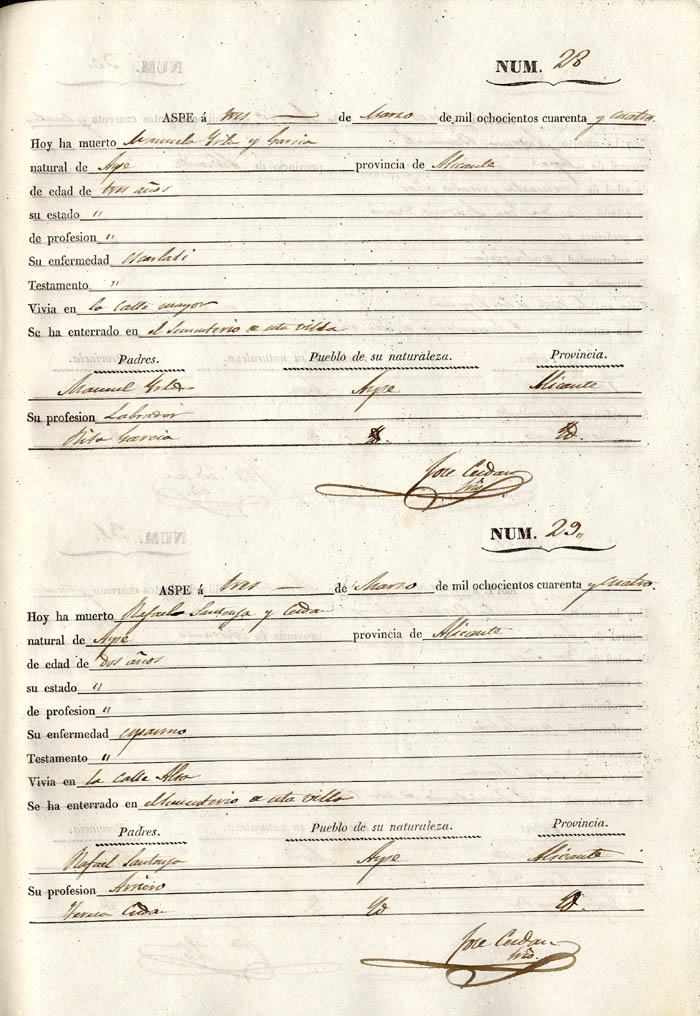 NUM. 28
ASPE á tres de Marzo de mil ochocientos cuarenta y cuatro.
Hoy ha muerto Manuela y Garcia
natural de Aspe provincia de Alicante
de edad de tres años
su estado "
de profesion "
Su enfermedad escarlati
Testamento "
Vivia en la Calle mayor
Se ha enterrado en el villa
Padres. Pueblo de su naturaleza. Provincia.
Manuel Aspe Alicante
Su profesion Labrador
Rita Garcia Id. Id.
Jose Cerdan
NUM. 29
ASPE á tres de Marzo de mil ochocientos cuarenta y cuatro.
Hoy ha muerto Rafael y
natural de Aspe provincia de Alicante
de edad de dos años
su estado "
de profesion "
Su enfermedad
Testamento "
Vivia en la Calle
Se ha enterrado en villa
Padres. Pueblo de su naturaleza. Provincia.
Rafael Aspe Alicante
Su profesion Arriero
Teresa Id Id.
Jose Cerdan